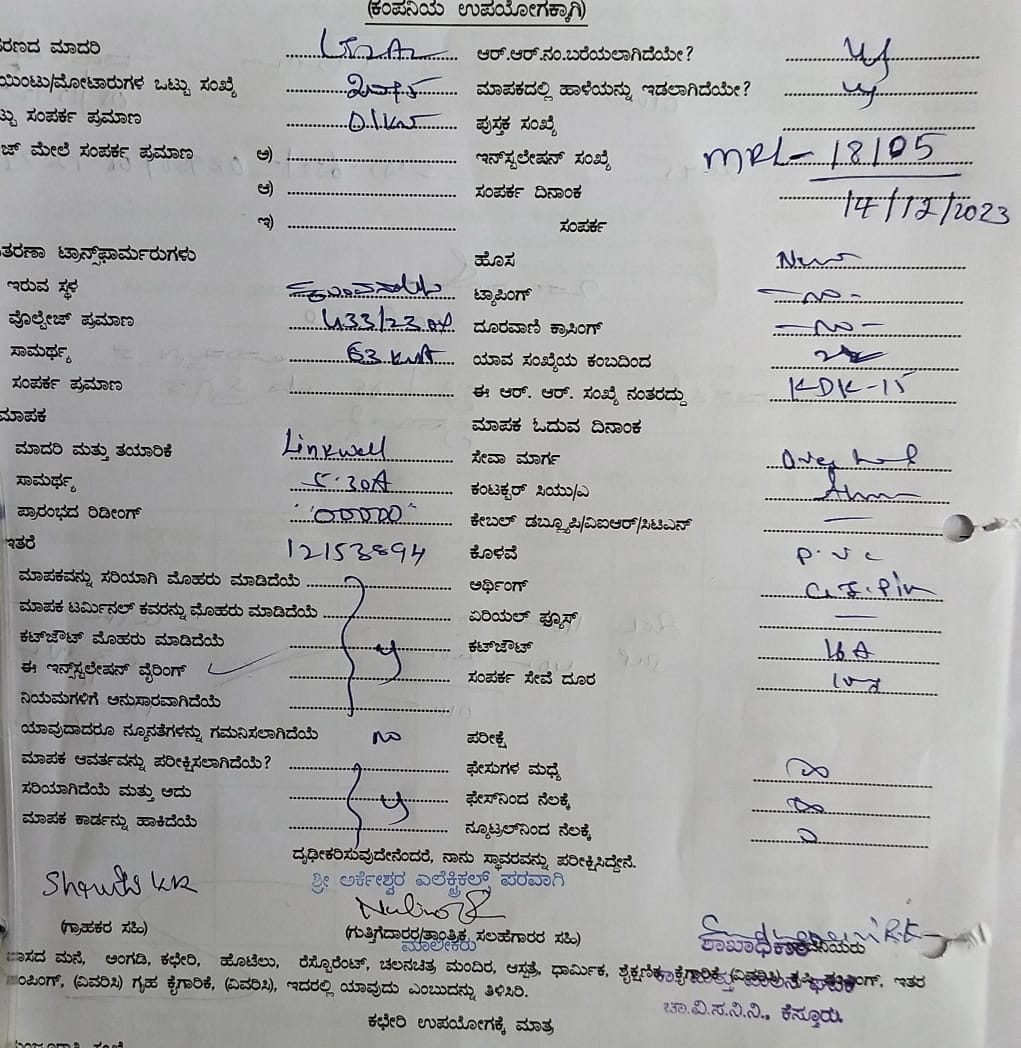 (ಕಂಪನಿಯ ಉಪಯೋಗಕ್ಕಾಗಿ)
ರಣದ ಮಾದರಿ ಆರ್.ಆರ್.ನಂ.ಬರೆಯಲಾಗಿದೆಯೇ?
ಯಿಂಟು/ಮೋಟಾರುಗಳ ಒಟ್ಟು ಸಂಖ್ಯೆ ಮಾಪಕದಲ್ಲಿ ಹಾಳೆಯನ್ನು ಇಡಲಾಗಿದೆಯೇ?
ಟ್ಟು ಸಂಪರ್ಕ ಪ್ರಮಾಣ 0.1kw ಪುಸ್ತಕ ಸಂಖ್ಯೆ
ಜ್ ಮೇಲೆ ಸಂಪರ್ಕ ಪ್ರಮಾಣ ಅ) ಇನ್‌ಸ್ಟಲೇಷನ್ ಸಂಖ್ಯೆ MRL-18105
ಆ) ಸಂಪರ್ಕ ದಿನಾಂಕ 14/12/2023
ಇ) ಸಂಪರ್ಕ
ತರಣಾ ಟ್ರಾನ್ಸ್‌ಫಾರ್ಮರುಗಳು ಹೊಸ New
ಇರುವ ಸ್ಥಳ ಟ್ಯಾಪಿಂಗ್ -no-
ವೊಲ್ಟೇಜ್ ಪ್ರಮಾಣ 433/230 ದೂರವಾಣಿ ಕ್ರಾಸಿಂಗ್ -no-
ಸಾಮರ್ಥ್ಯ 63 KVA ಯಾವ ಸಂಖ್ಯೆಯ ಕಂಬದಿಂದ
ಸಂಪರ್ಕ ಪ್ರಮಾಣ ಈ ಆರ್. ಆರ್. ಸಂಖ್ಯೆ ನಂತರದ್ದು KDK-15
ಮಾಪಕ ಮಾಪಕ ಓದುವ ದಿನಾಂಕ
ಮಾದರಿ ಮತ್ತು ತಯಾರಿಕೆ Linkwell ಸೇವಾ ಮಾರ್ಗ
ಸಾಮರ್ಥ್ಯ 5-30A ಕಂಟಕ್ಟರ್ ಸಿಯು/ಎ
ಪ್ರಾರಂಭದ ರಿಡೀಂಗ್ "00000" ಕೇಬಲ್ ಡಬ್ಲ್ಯೂಪಿ/ವಿಐಆರ್/ಸಿಟಿಎನ್
ಇತರೆ 12153894 ಕೊಳವೆ P.V.C
ಮಾಪಕವನ್ನು ಸರಿಯಾಗಿ ಮೊಹರು ಮಾಡಿದೆಯೆ ಆರ್ಥಿಂಗ್
ಮಾಪಕ ಟರ್ಮಿನಲ್ ಕವರನ್ನು ಮೊಹರು ಮಾಡಿದೆಯೆ ಏರಿಯಲ್ ಫ್ಯೂಸ್
ಕಟ್‌ಔಟ್ ಮೊಹರು ಮಾಡಿದೆಯೆ ಕಟ್‌ಔಟ್ 16A
ಈ ಇನ್‌ಸ್ಟಲೇಷನ್ ವೈರಿಂಗ್ ಸಂಪರ್ಕ ಸೇವೆ ದೂರ
ನಿಯಮಗಳಿಗೆ ಅನುಸಾರವಾಗಿದೆಯೆ
ಯಾವುದಾದರೂ ನ್ಯೂನತೆಗಳನ್ನು ಗಮನಿಸಲಾಗಿದೆಯೆ no ಪರೀಕ್ಷೆ
ಮಾಪಕ ಆವರ್ತವನ್ನು ಪರೀಕ್ಷಿಸಲಾಗಿದೆಯೆ? ಫೇಸುಗಳ ಮಧ್ಯೆ
ಸರಿಯಾಗಿದೆಯೆ ಮತ್ತು ಅದು ಫೇಸ್‌ನಿಂದ ನೆಲಕ್ಕೆ
ಮಾಪಕ ಕಾರ್ಡನ್ನು ಹಾಕಿದೆಯೆ ನ್ಯೂಟ್ರಲ್‌ನಿಂದ ನೆಲಕ್ಕೆ
ದೃಢೀಕರಿಸುವುದೇನೆಂದರೆ, ನಾನು ಸ್ಥಾವರವನ್ನು ಪರೀಕ್ಷಿಸಿದ್ದೇನೆ.
ಶ್ರೀ ಅರ್ಕೇಶ್ವರ ಎಲೆಕ್ಟ್ರಿಕಲ್ಸ್ ಪರವಾಗಿ
(ಗ್ರಾಹಕರ ಸಹಿ) (ಗುತ್ತಿಗೆದಾರರ/ತಾಂತ್ರಿಕ ಸಲಹೆಗಾರರ ಸಹಿ)
ಮಾಲೀಕರು ಶಾಖಾಧಿಕಾರಿ
ಾಸದ ಮನೆ, ಅಂಗಡಿ, ಕಛೇರಿ, ಹೊಟೆಲು, ರೆಸ್ಟೋರೆಂಟ್, ಚಲನಚಿತ್ರ ಮಂದಿರ, ಆಸ್ಪತ್ರೆ, ಧಾರ್ಮಿಕ, ಶೈಕ್ಷಣಿಕ, ಕೈಗಾರಿಕೆ (ವಿವರಿಸಿ), ಇತರ
ಂಪಿಂಗ್, (ವಿವರಿಸಿ) ಗೃಹ ಕೈಗಾರಿಕೆ, (ವಿವರಿಸಿ), ಇದರಲ್ಲಿ ಯಾವುದು ಎಂಬುದನ್ನು ತಿಳಿಸಿರಿ.
ಚಾ.ವಿ.ಸ.ನಿ.ನಿ., ಕೆಸ್ತೂರು.
ಕಛೇರಿ ಉಪಯೋಗಕ್ಕೆ ಮಾತ್ರ